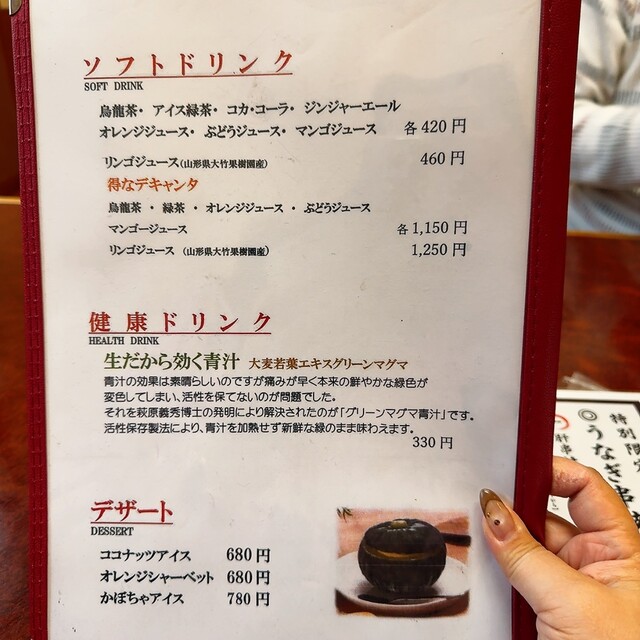 ソフトドリンク
SOFT DRINK
烏龍茶・ アイス緑茶・ コカ・コーラ・ ジンジャーエール
オレンジジュース・ ぶどうジュース・ マンゴジュース 各 420 円
リンゴジュース(山形県大竹果樹園産) 460 円
得なデキャンタ
烏龍茶 ・ 緑茶 ・ オレンジジュース ・ ぶどうジュース
マンゴージュース 各 1,150 円
リンゴジュース (山形県大竹果樹園産) 1,250 円
健康ドリンク
HEALTH DRINK
生だから効く青汁 大麦若葉エキスグリーンマグマ
青汁の効果は素晴らしいのですが痛みが早く本来の鮮やかな緑色が
変色してしまい、活性を保てないのが問題でした。
それを萩原義秀博士の発明により解決されたのが「グリーンマグマ青汁」です。
活性保存製法により、青汁を加熱せず新鮮な緑のまま味わえます。
330 円
デザート
DESSERT
ココナッツアイス 680 円
オレンジシャーベット 680 円
かぼちゃアイス 780 円
特別限定
うなぎ串
肝串